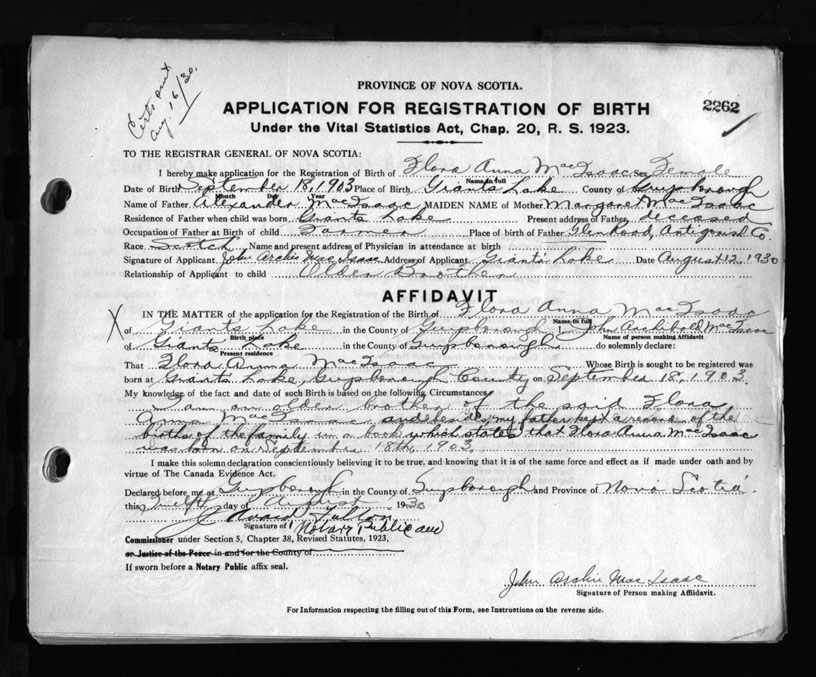 Certs sent
Aug 16/30.
PROVINCE OF NOVA SCOTIA.
APPLICATION FOR REGISTRATION OF BIRTH
2262
Under the Vital Statistics Act, Chap. 20, R. S. 1923.
TO THE REGISTRAR GENERAL OF NOVA SCOTIA:
I hereby make application for the Registration of Birth of Flora Anna MacIsaac Sex Female
Name in full
Date of Birth September 18, 1903 Place of Birth Giants Lake County of Guysborough
Month Day
Name of Father Alexander MacIsaac MAIDEN NAME of Mother Margaret MacIsaac
Residence of Father when child was born Giants Lake Present address of Father deceased
Occupation of Father at Birth of child Farmer Place of birth of Father Glen Road, Antigonish Co
Race Scotch Name and present address of Physician in attendance at birth
Signature of Applicant John Archie MacIsaac Address of Applicant Giants Lake Date August 12, 1930
Relationship of Applicant to child Older Brother
AFFIDAVIT
X IN THE MATTER of the application for the Registration of the Birth of Flora Anna MacIsaac
Name in full
of Giants Lake in the County of Guysborough I John Archibald MacIsaac
Birth place Name of person making Affidavit
of Giants Lake in the County of Guysborough do solemnly declare:
Present residence
That Flora Anna MacIsaac Whose Birth is sought to be registered was
born at Giants Lake, Guysborough County on September 18, 1903.
My knowledge of the fact and date of such Birth is based on the following Circumstances
I am an older brother of the said Flora
Anna MacIsaac and besides, my father kept a record of the
births of the family in a book which states that Flora Anna MacIsaac
was born on September 18th, 1903.
I make this solemn declaration conscientiously believing it to be true, and knowing that it is of the same force and effect as if made under oath and by
virtue of The Canada Evidence Act.
Declared before me at Guysborough in the County of Guysborough and Province of Nova Scotia
this twelfth day of August 1930
Fulton
Signature of Notary Public and
Commissioner under Section 5, Chapter 38, Revised Statutes, 1923,
or Justice of the Peace in and for the County of
If sworn before a Notary Public affix seal.
John Archie MacIsaac
Signature of Person making Affidavit.
For Information respecting the filling out of this Form, see Instructions on the reverse side.